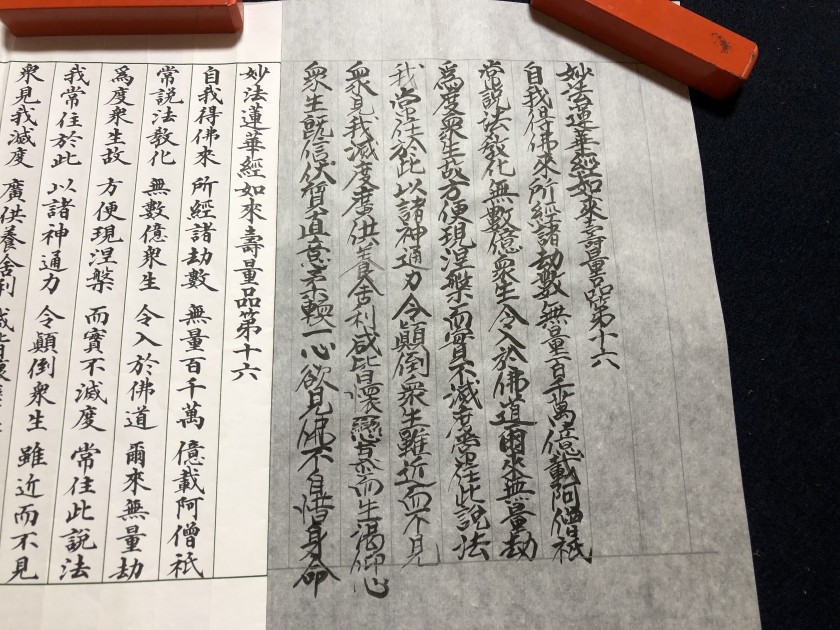 妙法蓮華經如來壽量品第十六
自我得佛來所經諸劫數無量百千萬億載阿僧祇
常說法教化無數億衆生令入於佛道爾來無量劫
為度衆生故方便現涅槃而實不滅度常住此說法
我常住於此以諸神通力令顛倒衆生雖近而不見
衆見我滅度廣供養舍利咸皆懷戀慕而生渇仰心
衆生既信伏質直意柔輭一心欲見佛不自惜身命
妙法蓮華經如來壽量品第十六
自我得佛來 所經諸劫數 無量百千萬 億載阿僧祇
常說法教化 無數億衆生 令入於佛道 爾來無量劫
為度衆生故 方便現涅槃 而實不滅度 常住此說法
我常住於此 以諸神通力 令顛倒衆生 雖近而不見
衆見我滅度 廣供養舍利 咸皆懷